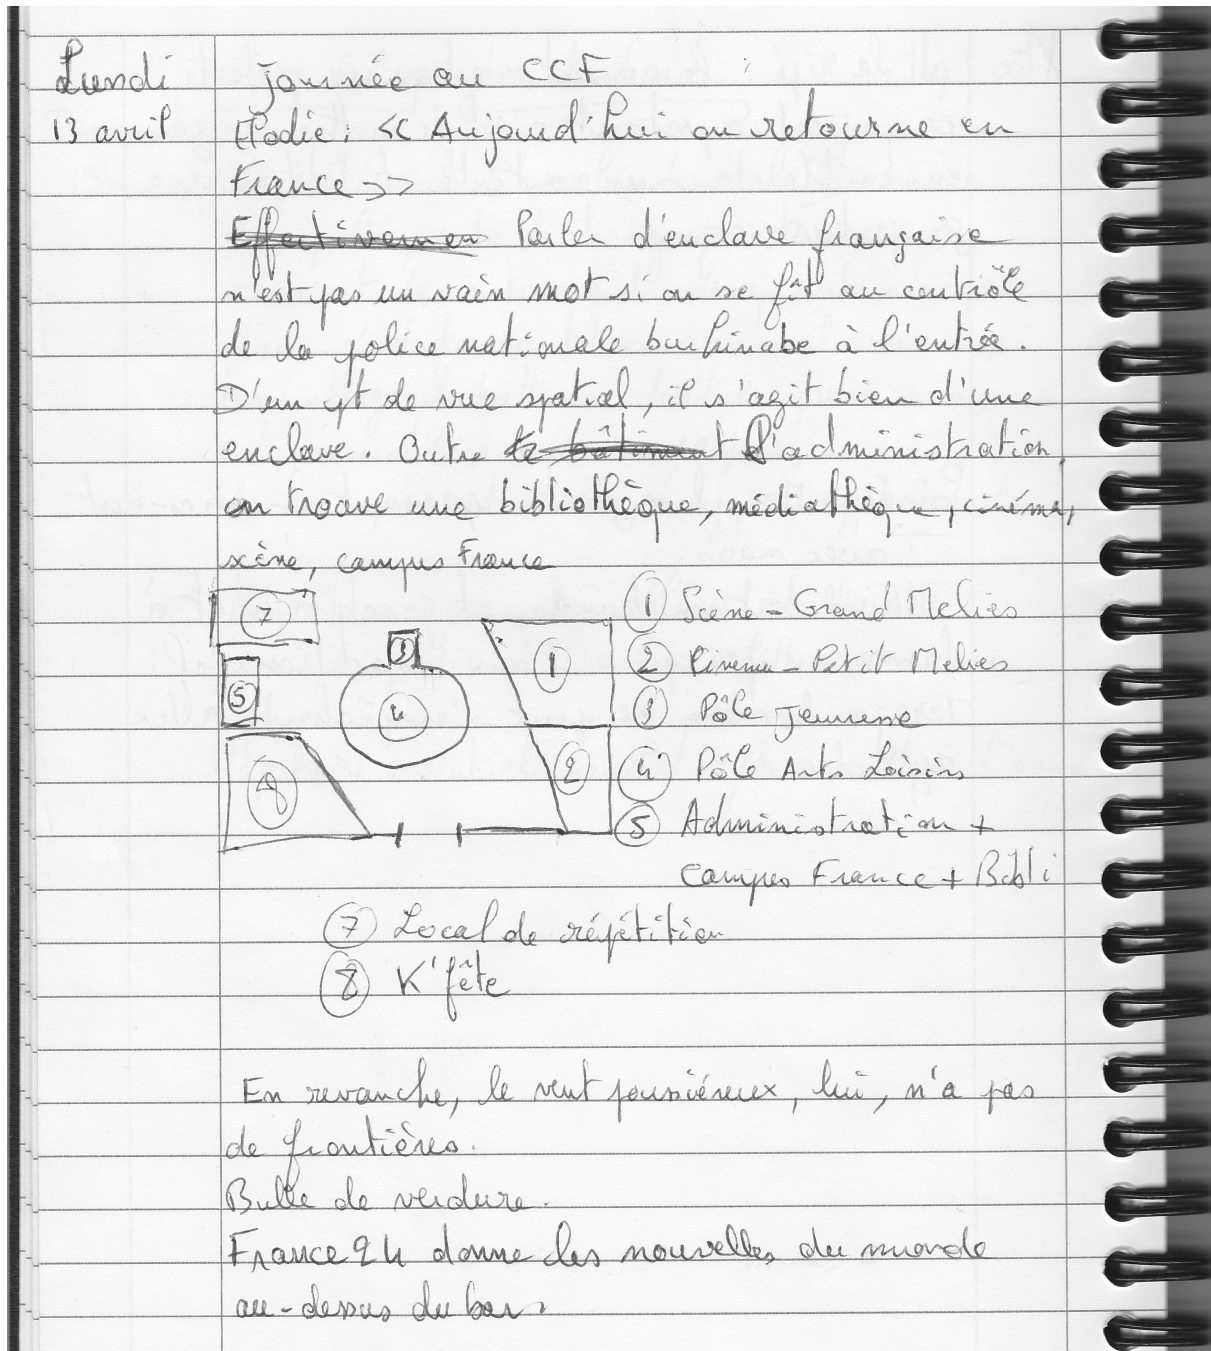 Lundi journée au CCF
13 avril Elodie : << Aujourd'hui on retourne en
France >>
Effectivemen Parler d'enclave française
n'est pas un vain mot si on se fît au contrôle
de la police nationale burkinabe à l'entrée.
D'un pt de vue spatial, il s'agit bien d'une
enclave. Outre le bâtiment l'administration,
on trouve une bibliothèque, médiathèque, cinéma,
scène, campus France
7
3
1
5
4
2
8
① Scène - Grand Melies
② Cinema - Petit Melies
③ Pôle Jeunesse
④ Pôle Arts Loisirs
⑤ Administration +
campus France + Bibli
⑦ Local de répétition
⑧ K'fête
En revanche, le vent poussiéreux, lui, n'a pas
de frontières.
Bulle de verdure.
France 24 donne les nouvelles du monde
au-dessus du bar